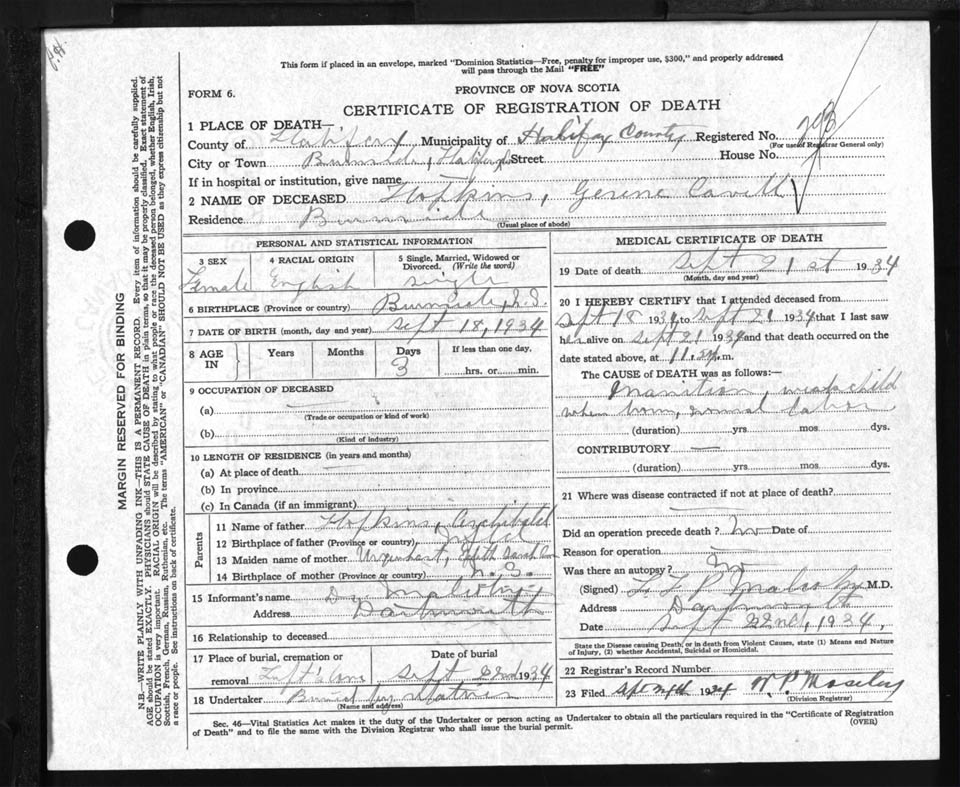 This form if placed in an envelope, marked "Dominion Statistics—Free, penalty for improper use, $300," and properly addressed
will pass through the Mail "FREE"
FORM 6.
PROVINCE OF NOVA SCOTIA
CERTIFICATE OF REGISTRATION OF DEATH
1 PLACE OF DEATH—
County of Halifax Municipality of Halifax County Registered No.
(For use of Registrar General only)
City or Town Burnside, Halifax Street House No.
If in hospital or institution, give name
2 NAME OF DECEASED Hopkins, Gerene Cavell
Residence Burnside
(Usual place of abode)
PERSONAL AND STATISTICAL INFORMATION
3 SEX 4 RACIAL ORIGIN 5 Single, Married, Widowed or
Divorced. (Write the word)
Female English single
6 BIRTHPLACE (Province or country) Burnside, N.S.
7 DATE OF BIRTH (month, day and year) Sept 18, 1934
8 AGE IN Years Months Days If less than one day,
3 hrs. or min.
9 OCCUPATION OF DECEASED
(a) —
(Trade or occupation or kind of work)
(b)
(Kind of industry)
10 LENGTH OF RESIDENCE (in years and months)
(a) At place of death
(b) In province
(c) In Canada (if an immigrant)
Parents
11 Name of father Hopkins, Archibald
12 Birthplace of father (Province or country) Nfld
13 Maiden name of mother Urquhart, Edith Sarah
14 Birthplace of mother (Province or country) N.S.
15 Informant's name Dr. Malcolm
Address Dartmouth
16 Relationship to deceased
17 Place of burial, cremation or Date of burial
removal Sept 22nd 1934
18 Undertaker Buried by
(Name and address)
MEDICAL CERTIFICATE OF DEATH
19 Date of death Sept 21st 1934
(Month, day and year)
20 I HEREBY CERTIFY that I attended deceased from
Sept 18 1934 to Sept 21 1934 that I last saw
her alive on Sept 21 1934 and that death occurred on the
date stated above, at 11.30 p.m.
The CAUSE of DEATH was as follows:—
Inanition, weak child
when born, normal labor
(duration) yrs. mos. dys.
CONTRIBUTORY —
(duration) yrs. mos. dys.
21 Where was disease contracted if not at place of death?
—
Did an operation precede death? no Date of
Reason for operation —
Was there an autopsy? no
(Signed) Malcolm M.D.
Address Dartmouth
Date Sept 22nd, 1934,
State the Disease causing Death, or in death from Violent Causes, state (1) Means and Nature
of Injury, (2) whether Accidental, Suicidal or Homicidal.
22 Registrar's Record Number
23 Filed Sept 24th 1934 W.P. Moseley
(Division Registrar)
Sec. 46—Vital Statistics Act makes it the duty of the Undertaker or person acting as Undertaker to obtain all the particulars required in the "Certificate of Registration
of Death" and to file the same with the Division Registrar who shall issue the burial permit.
(OVER)
MARGIN RESERVED FOR BINDING
N.B.—WRITE PLAINLY WITH UNFADING INK—THIS IS A PERMANENT RECORD. Every item of information should be carefully supplied.
AGE should be stated EXACTLY. PHYSICIANS should STATE CAUSE OF DEATH in plain terms, so that it may be properly classified. Exact statement of
OCCUPATION is very important. RACIAL ORIGIN will be described by stating to what people or race the deceased person belonged, whether English, Irish,
Scottish, French, German, Russian, Ruthenian, etc. The terms "AMERICAN" or "CANADIAN" SHOULD NOT BE USED as they express citizenship but not
a race or people. See instructions on back of certificate.